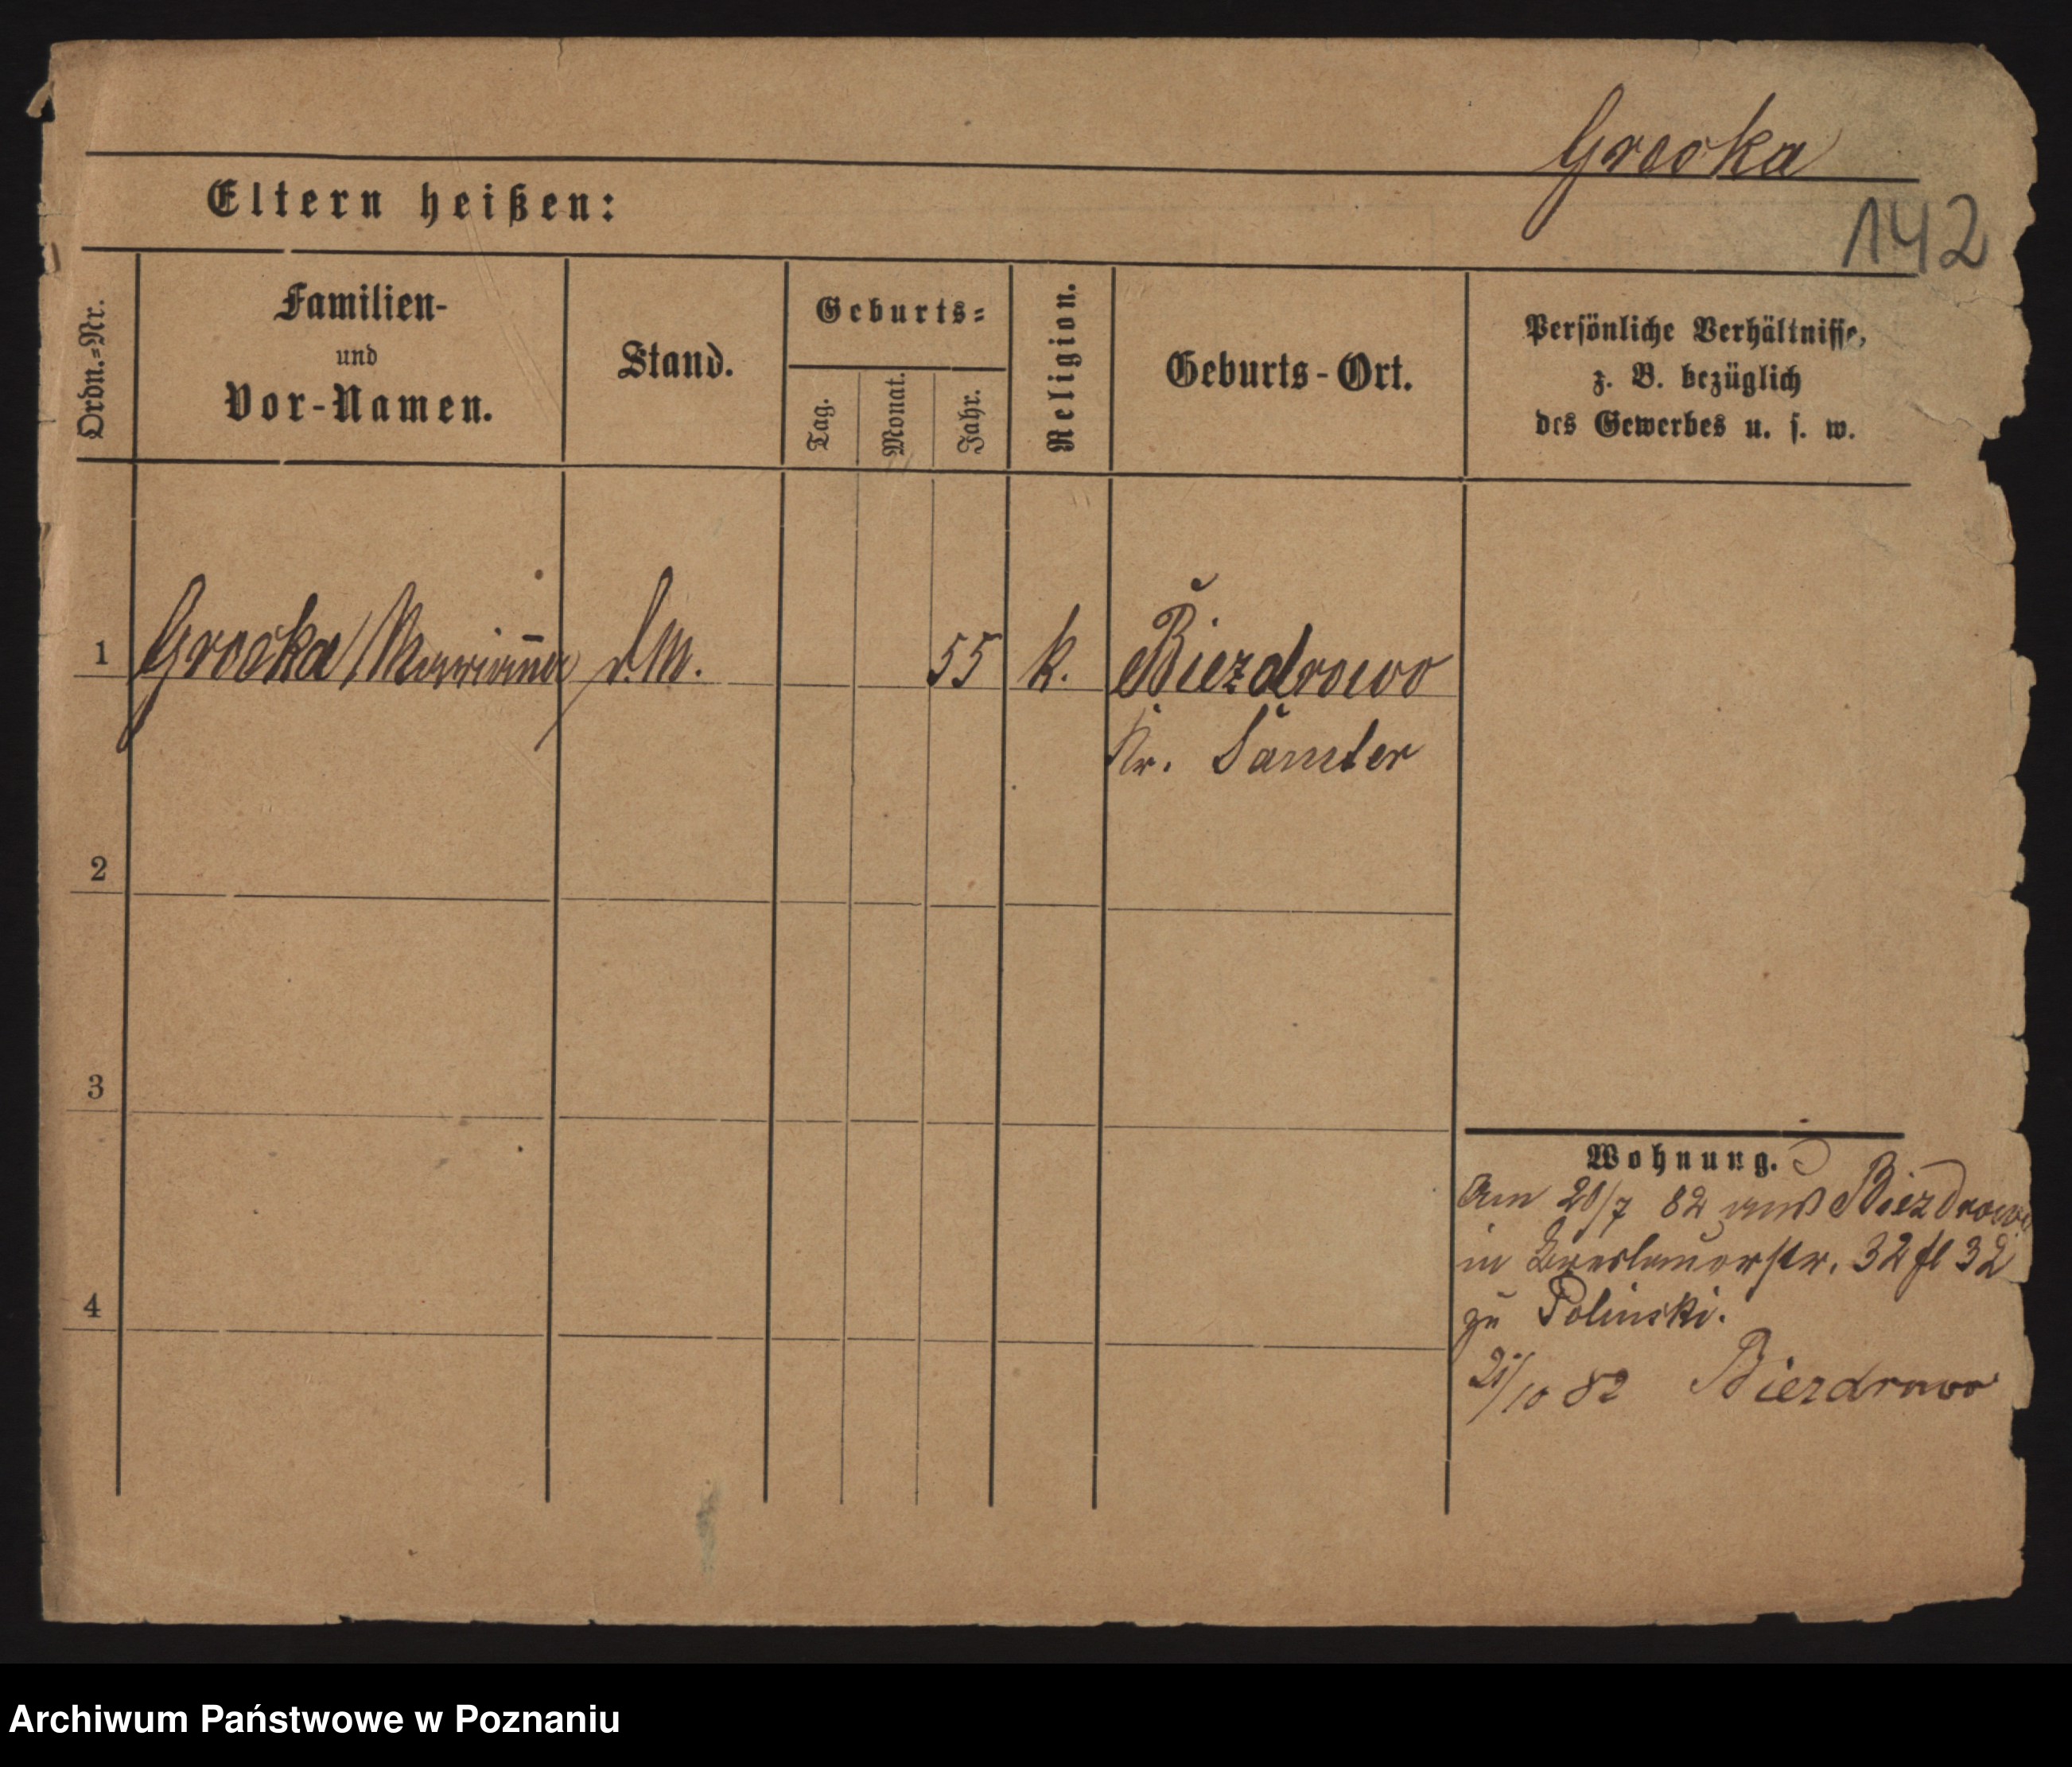 Grocka
142
Eltern heißen:
Ordn.=Nr.
Familien-
und
Vor-Namen.
Stand.
Geburts=
Tag.
Monat.
Jahr.
Religion.
Geburts-Ort.
Persönliche Verhältnisse,
z. B. bezüglich
des Gewerbes u. s. w.
1 Grocka Marianna d.M. 55 k. Biezdrowo
Kr. Samter
2
3
4
Wohnung.
Am 20/7 82 aus Biezdrowo
in Breslauerstr. 32 fl 32
zu Polinski.
21/10 82 Biezdrowo
Archiwum Państwowe w Poznaniu